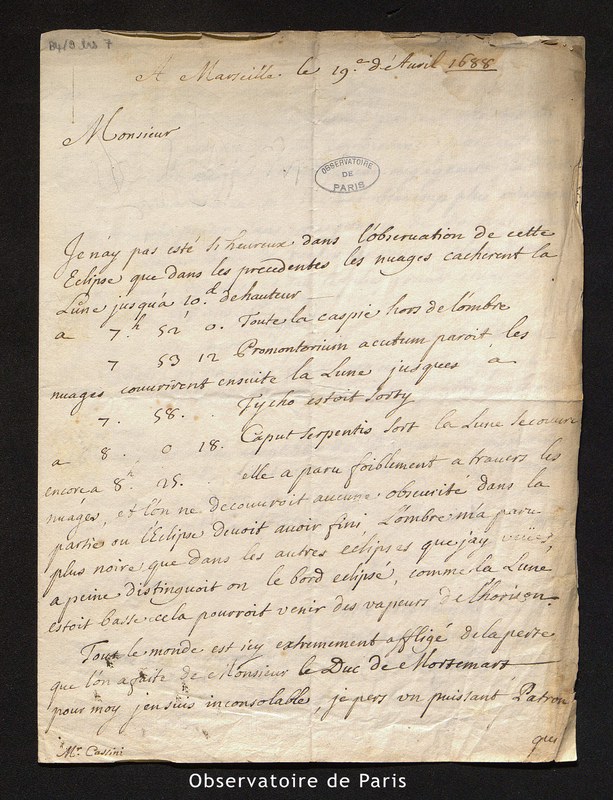 B4/9 bis 7
A Marseille le 19.e d'Avril 1688
Monsieur
OBSERVATOIRE
DE
PARIS
Je n'ay pas esté si heureux dans l'observation de cette
Eclipse que dans les precedentes les nuages cacherent la
Lune jusqu'a 10.d de hauteur
a 7.h 52' 0. Toute la caspie hors de l'ombre
7 53 12 Promontorium acutum paroit les
nuages couvrirent ensuite la Lune jusques à
7. 58. Tycho estoit sorty
a 8. 0 18. Caput serpentis sort la Lune se couvre
encore a 8h 25. elle a paru foiblement a travers les
nuages, et l'on ne decouvroit aucune obscurité dans la
partie ou l'Eclipse devoit avoir fini L'ombre m'a paru
plus noire que dans les autres eclipses que jay veües,
a peine distinguoit on le bord eclipsé, comme la Lune
estoit basse cela pourroit venir des vapeurs de l'horison.
Tout le monde est icy extremement affligé de la perte
que l'on a faite de Monsieur le Duc de Mortemart
pour moy jen suis inconsolable, je pers un puissant Patron
qui
Mr. Cassini
Observatoire de Paris